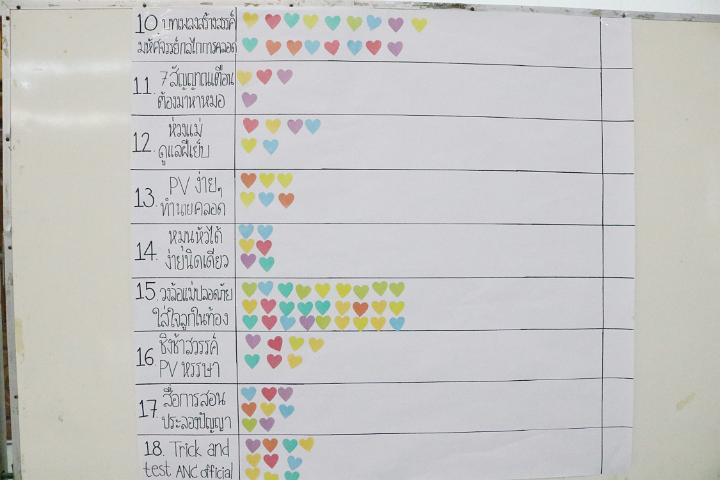 10 บทเพลงสร้างสรรค์
มหัศจรรย์กลไกการคลอด
11. 7 สัญญาณเตือน
ต้องมาหาหมอ
12. ห่วงแม่
ดูแลฝีเย็บ
13. PV ง่ายๆ
ทำนายคลอด
14. หมุนหัวได้
ง่ายนิดเดียว
15. วงล้อแม่ปลอดภัย
ใส่ใจลูกในท้อง
16. ชิงช้าสวรรค์
PV หรรษา
17. สื่อการสอน
ประลองปัญญา
18. Trick and
test ANC official